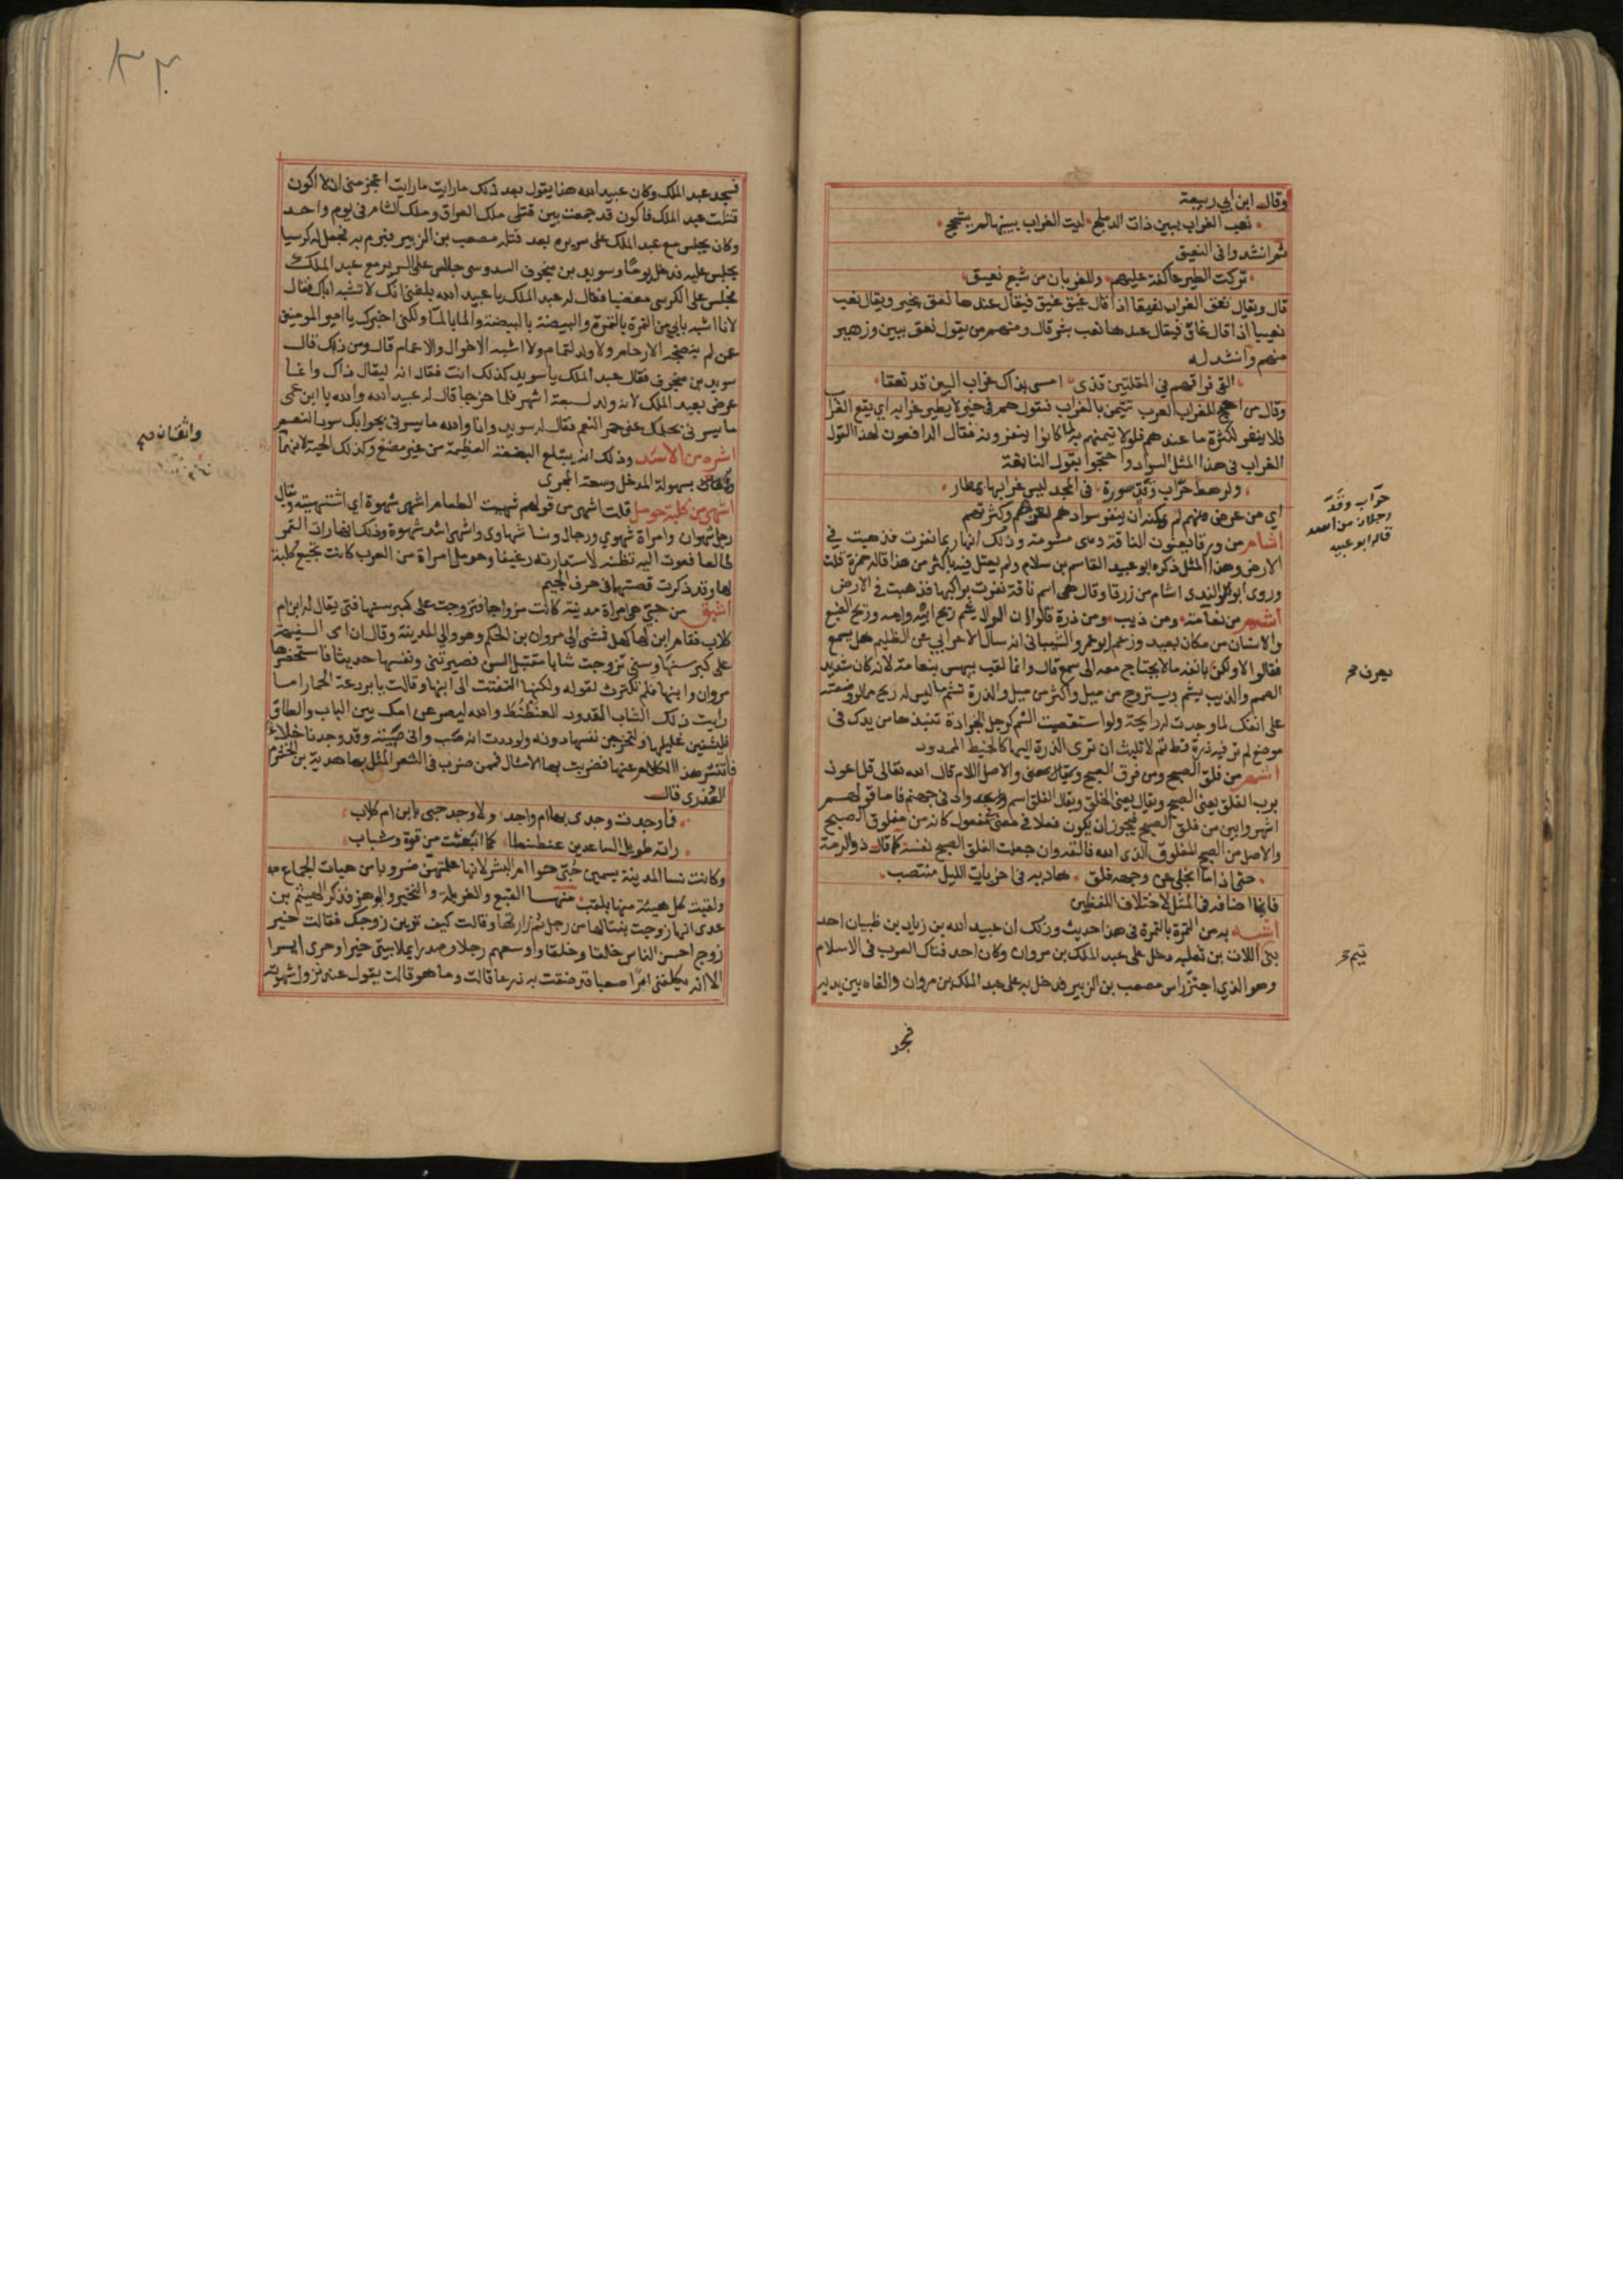 وقال ابن ابي ربيعة
نعب الغراب ببين ذات الدملج ليت الغراب ببينها لم يشحج
ثم انشدوا في النعيق
تركت الطير عاكفة عليهم وللغربان من شبع نعيق
قال ويقال نغق الغراب نغيقا اذا قال غيق غيق فيقال عندها نغق بخير ويقال نعب
نعيبا اذا قال غاق فيقال عندها نعب بشر قال ومنهم من يقول نغق ببين وزهير
منهم وانشد له
القى فراقهم في المقلتين قذى امسى بذاك غراب البين قد نعقا
وقال من احتج للغراب العرب تتيمن بالغراب فتقول هم في خير لا يطير غرابه اي يقع الغراب
فلا ينفر لكثرة ما عندهم فلولا تيمنهم به لما كانوا ينفرونه فقال الدافعون لهذا القول
الغراب في هذا المثل السواد واحتجوا بقول النابغة
ولرهط حراب وقد سورة في المجد ليس غرابها بمطار
اي من عرض منهم لم يمكنه ان ينفر سوادهم لعزهم وكثرتهم
اشام من ورقا يعنون الناقة وهى مشومة وذلك انها ربما نفرت فذهبت في
الارض وهذا المثل ذكره ابو عبيد القاسم بن سلام ولم يعتل فيه باكثر من هذا قاله حمزة قلت
وروى ابو الندى اشام من زرقا وقال هى اسم ناقة نفرت براكبها فذهبت في الارض
اشم من نعامة ومن ذيب ومن ذرة قالوا ان الرال يشم ريح ابيه وامه وريح الضبع
والانسان من مكان بعيد وزعم ابو عمرو الشيباني انه سال الاعرابي عن الظليم هل يسمع
فقالوا لا ولكن بانفه ما لا يحتاج معه الى سمع قال وانما لقب بيهس بنعامة لانه كان شديد
الصمم والذيب يشم ويستروح من ميل واكثر من ميل والذرة تشم ما ليس له ريح مما لو وضعته
على انفك لما وجدت له رايحة ولو استقصيت الشم كرجل الجرادة تنبذها من يدك في
موضع لم تر فيه ذرة قط ثم لا تلبث ان ترى الذرة اليها كالخيط الممدود
اشهر من فلق الصبح ومن فرق الصبح ويقال بمعنى والاصل اللام قال الله تعالى قل اعوذ
برب الفلق يعني الصبح ويقال يعني الخلق ويقال الفلق اسم واد في جهنم فاما قولهم
اشهر وابين من فلق الصبح فيجوز ان يكون فعلا في معنى مفعول كانه من مفلوق الصبح
والاصل من الصبح المفلوق الذي الله فالقه وان جعلت الفلق الصبح نفسه كما قال ذو الرمة
حتى اذا ما انجلى عن وجهه فلق هاديه في اخريات الليل منتصب
فانما اضافه في المثل لاختلاف اللفظين
اشبه به من التمرة بالتمرة في هذا حديث وذلك ان عبيد الله بن زياد بن ظبيان احد
بنى اللات بن ثعلبة دخل على عبد الملك بن مروان وكان احد فتاك العرب في الاسلام
وهو الذي اجتز راس مصعب بن الزبير فدخل به على عبد الملك بن مروان والقاه بين يديه
فسجد
حراب وقد
رجلان من اسد
قاله ابو عبيد
يعرف صح
تيم صح
٣٣
فسجد عبد الملك وكان عبيد الله هذا يقول بعد ذلك ما رايت ما رايت اعجز مني ان لا اكون
قتلت عبد الملك فاكون قد جمعت بين قتلى ملك العراق وملك الشام في يوم واحد
وكان يجلس مع عبد الملك على سريره بعد قتله مصعب بن الزبير فبرم به فجعل له كرسيا
يجلس عليه فدخل يوما وسويد بن منجوف السدوسى جالس على السرير مع عبد الملك
فجلس على الكرسى مغضبا فقال له عبد الملك يا عبيد الله بلغني انك لا تشبه اباك فقال
لانا اشبه بابي من التمرة بالتمرة والبيضة بالبيضة والما بالما ولكنى اخبرك يا امير المومنين
عمن لم ينضجه الارحام ولا ولد لتمام ولا اشبه الاخوال والاعمام قال ومن ذلك قال
سويد بن منجوف فقال عبد الملك يا سويد كذلك انت فقال انه ليقال ذاك وانما
عرض بعبد الملك لانه ولد لسبعة اشهر فلما خرجا قال له عبيد الله والله يا ابن عمى
ما يسرنى بحلمك عنى حمر النعم فقال له سويد وانا والله ما يسرنى بجوابك سود النعم
اشره من الاسد وذلك انه يبتلع البضعة العظيمة من غير مضغ وكذلك الحية لانهما
بسهولة المدخل وسعة المجرى
اشهى من كلبة حومل قلت اشهى من قولهم شهيت الطعام اشهى شهوة اى اشتهيته ويقال
رجل شهوان وامراة شهوى ورجال ونسا شهاوى واشهى اشد شهوة وذلك انها رات القمر
طالعا فعوت اليه تظنه لاستدارته رغيفا وحومل امراة من العرب كانت تجيع كلبة
لها وقد ذكرت قصتها في حرف الجيم
اشبق من حبى هى امراة مدينة كانت مزواجا فتزوجت على كبر سنها فتى يقال له ابن ام
كلاب فقام ابن لها كهل فمشى الى مروان بن الحكم وهو والي المدينة وقال ان امى السفيهة
على كبر سنها وسنى تزوجت شابا مقتبل السن فصيرتنى ونفسها حديثا فاستحضرها
مروان وابنها فلم تكترث لقوله ولكنها التفتت الى ابنها وقالت يا بردعة الحمار اما
رايت ذلك الشاب المقدود العنطنط والله ليصرعن امك بين الباب والطاق
فليشفين غليلها ولتخرجن نفسها دونه ولوددت انه ضب وانى ضبيبته وقد وجدنا خلاء
فانتشر هذا الكلام عنها فضربت بها الامثال فمن ضرب في الشعر المثل بها هدبة بن الخشرم
العذرى قال
فما وجدت وجدى بها ام واحد ولا وجد حبى بابن ام كلاب
راته طويل الساعدين عنطنطا كما انبعثت من قوة وشباب
وكانت نسا المدينة يسمين حبى حوا ام البشر لانها علمتهن ضروبا من هيات الجماع
ولقبت كل هيئة منها بلقب منها القبع والغربلة والنخير والرهز فذكر الهيثم بن
عدى انها زوجت بنتا لها من رجل ثم زارتها وقالت كيف ترين زوجك فقالت خير
زوج احسن الناس خلقا وخلقا واوسعهم رحلا وصدرا يملا بيتى خيرا وحرى ايرا
الا انه يكلفنى امرا صعبا قد ضقت به ذرعا قالت وما هو قالت يقول عند نزول شهوته